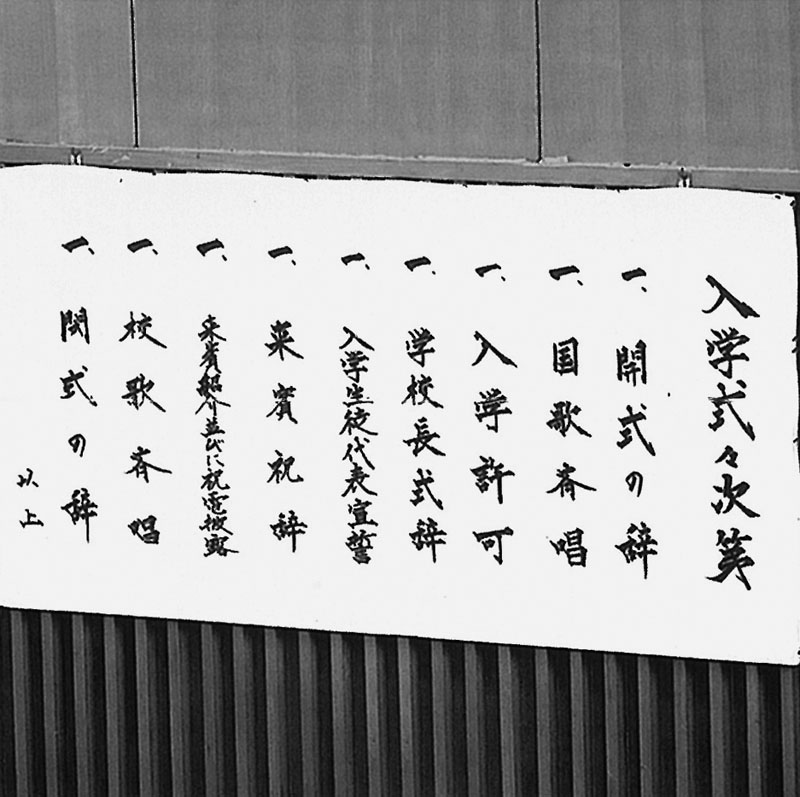 入学式々次第
一、開式の辞
一、国歌斉唱
一、入学許可
一、学校長式辞
一、入学生徒代表宣誓
一、来賓祝辞
一、来賓紹介並びに祝電披露
一、校歌斉唱
一、閉式の辞
以上